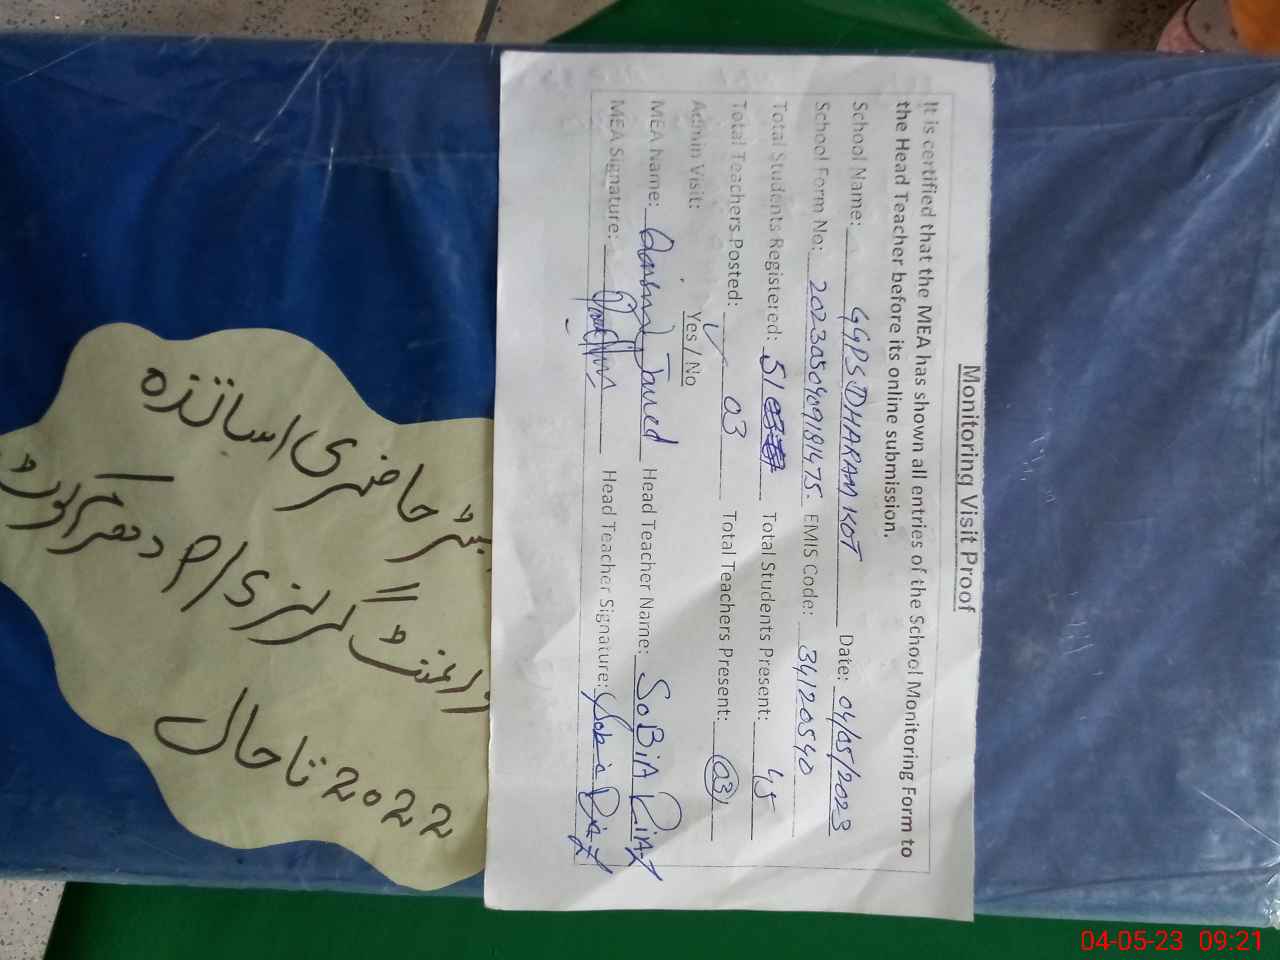 Monitoring Visit Proof
It is certified that the MEA has shown all entries of the School Monitoring Form to
the Head Teacher before its online submission.
School Name: GGPS DHARAM KOT Date: 04/05/2023
School Form No: 2023050409181475. EMIS Code: 34120540
Total Students Registered: 51 Total Students Present: 45
Total Teachers Posted: 03 Total Teachers Present: 03
Admin Visit: Yes / No
MEA Name: Javed Head Teacher Name: SOBIA RIAZ
MEA Signature: Head Teacher Signature: Sobia Riaz
حاضری اساتذہ
گرلز ی/پ دھرم کوٹ
2022 تا حال
04-05-23 09:21